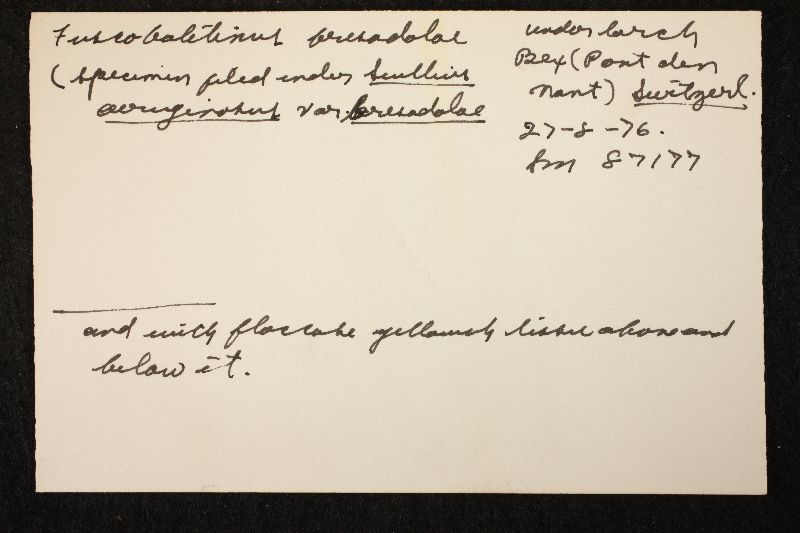 Fuscoboletinus bresadolae
(specimen filed under Suillus
aeruginosus var. bresadolae
under larch
Bex (Pont den
Nant) Switzerl.
27-8-76.
Sm 87177
and with floccose yellowish tissue above and
below it.